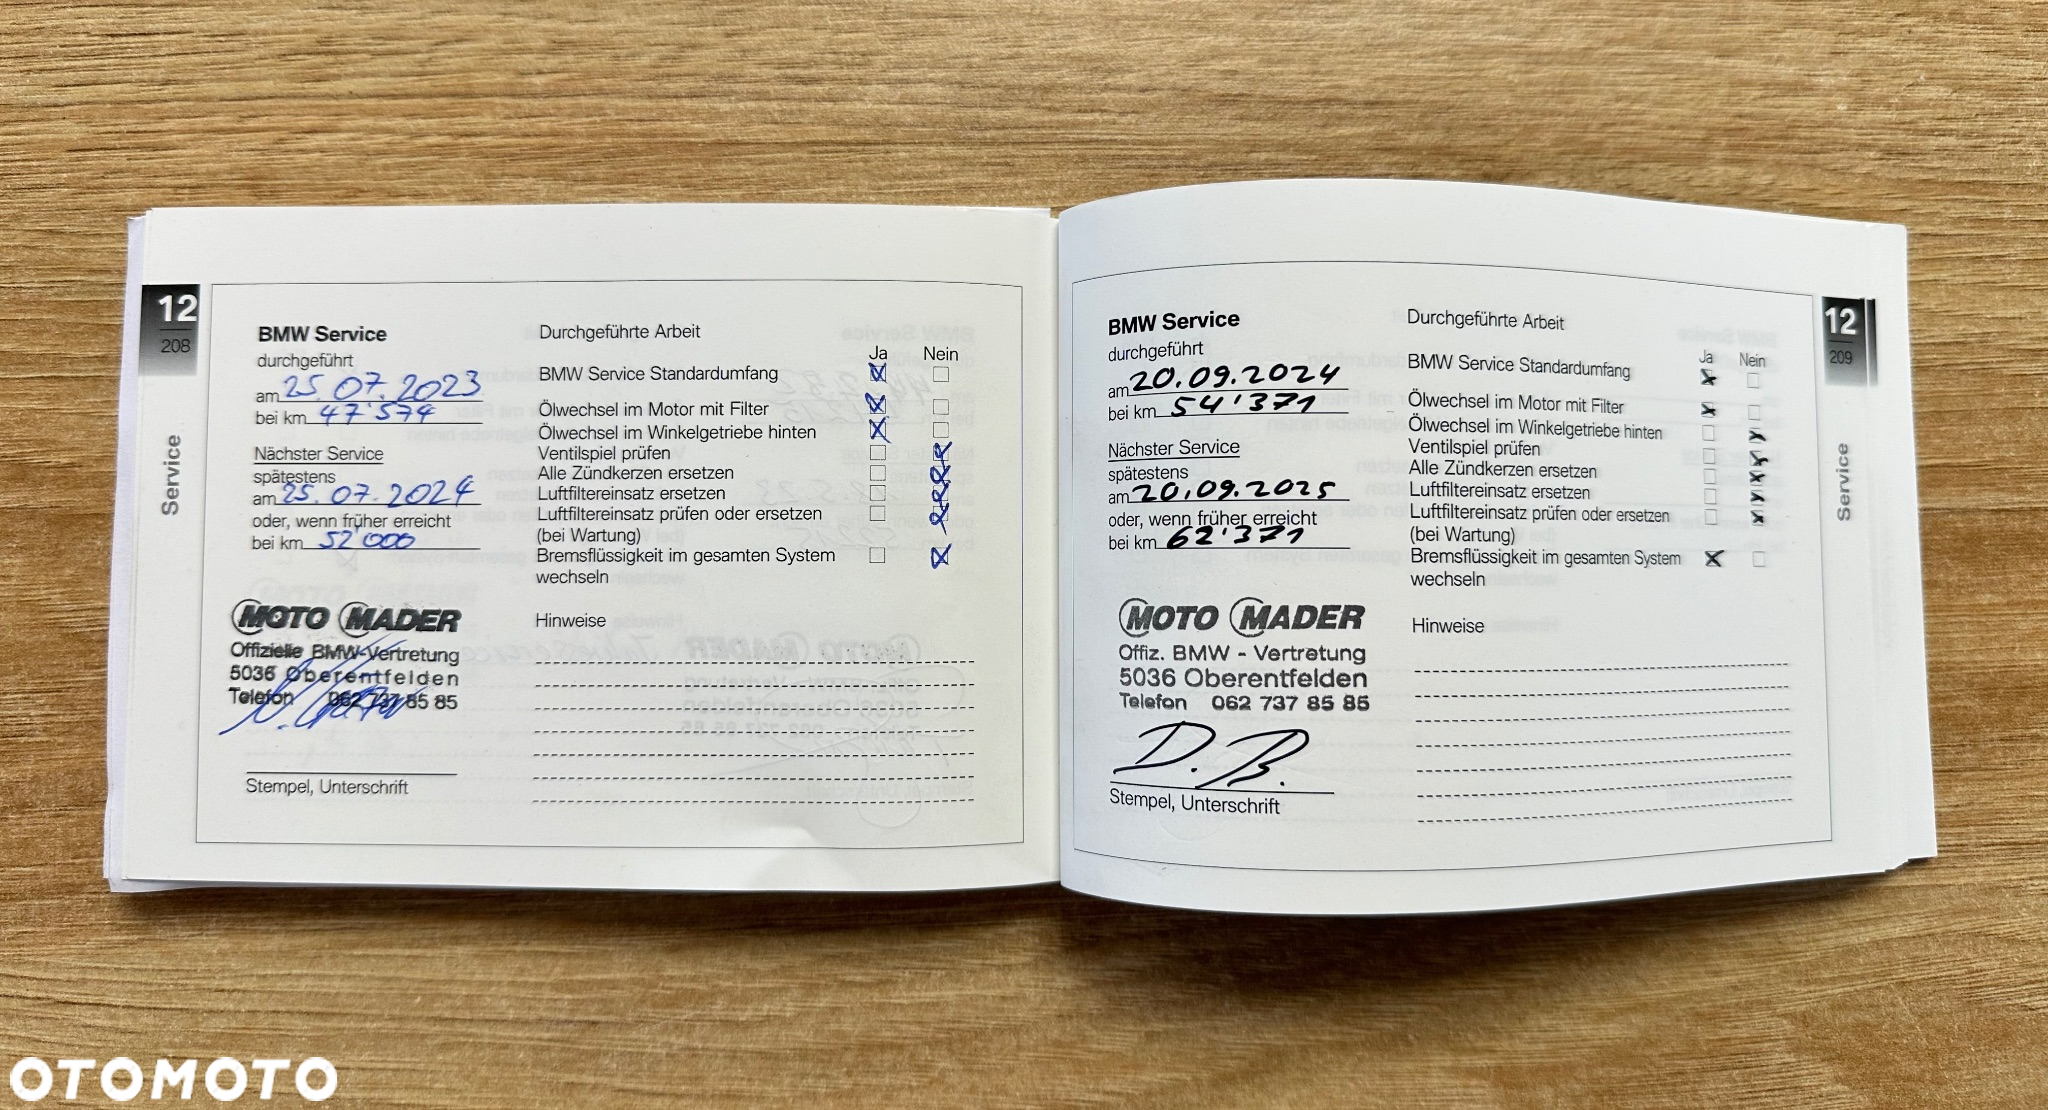 12
208
Service
BMW Service
durchgeführt
am 25.07.2023
bei km 47'574
Nächster Service
spätestens
am 25.07.2024
oder, wenn früher erreicht
bei km 52'000
MOTO MADER
Offizielle BMW-Vertretung
5036 Oberentfelden
Telefon 062 737 85 85
Stempel, Unterschrift
Durchgeführte Arbeit
Ja Nein
BMW Service Standardumfang
Ölwechsel im Motor mit Filter
Ölwechsel im Winkelgetriebe hinten
Ventilspiel prüfen
Alle Zündkerzen ersetzen
Luftfiltereinsatz ersetzen
Luftfiltereinsatz prüfen oder ersetzen
(bei Wartung)
Bremsflüssigkeit im gesamten System
wechseln
Hinweise
BMW Service
durchgeführt
am 20.09.2024
bei km 54'371
Nächster Service
spätestens
am 20.09.2025
oder, wenn früher erreicht
bei km 62'371
MOTO MADER
Offiz. BMW - Vertretung
5036 Oberentfelden
Telefon 062 737 85 85
D. B.
Stempel, Unterschrift
Durchgeführte Arbeit
Ja Nein
BMW Service Standardumfang
Ölwechsel im Motor mit Filter
Ölwechsel im Winkelgetriebe hinten
Ventilspiel prüfen
Alle Zündkerzen ersetzen
Luftfiltereinsatz ersetzen
Luftfiltereinsatz prüfen oder ersetzen
(bei Wartung)
Bremsflüssigkeit im gesamten System
wechseln
Hinweise
12
209
Service
OTOMOTO